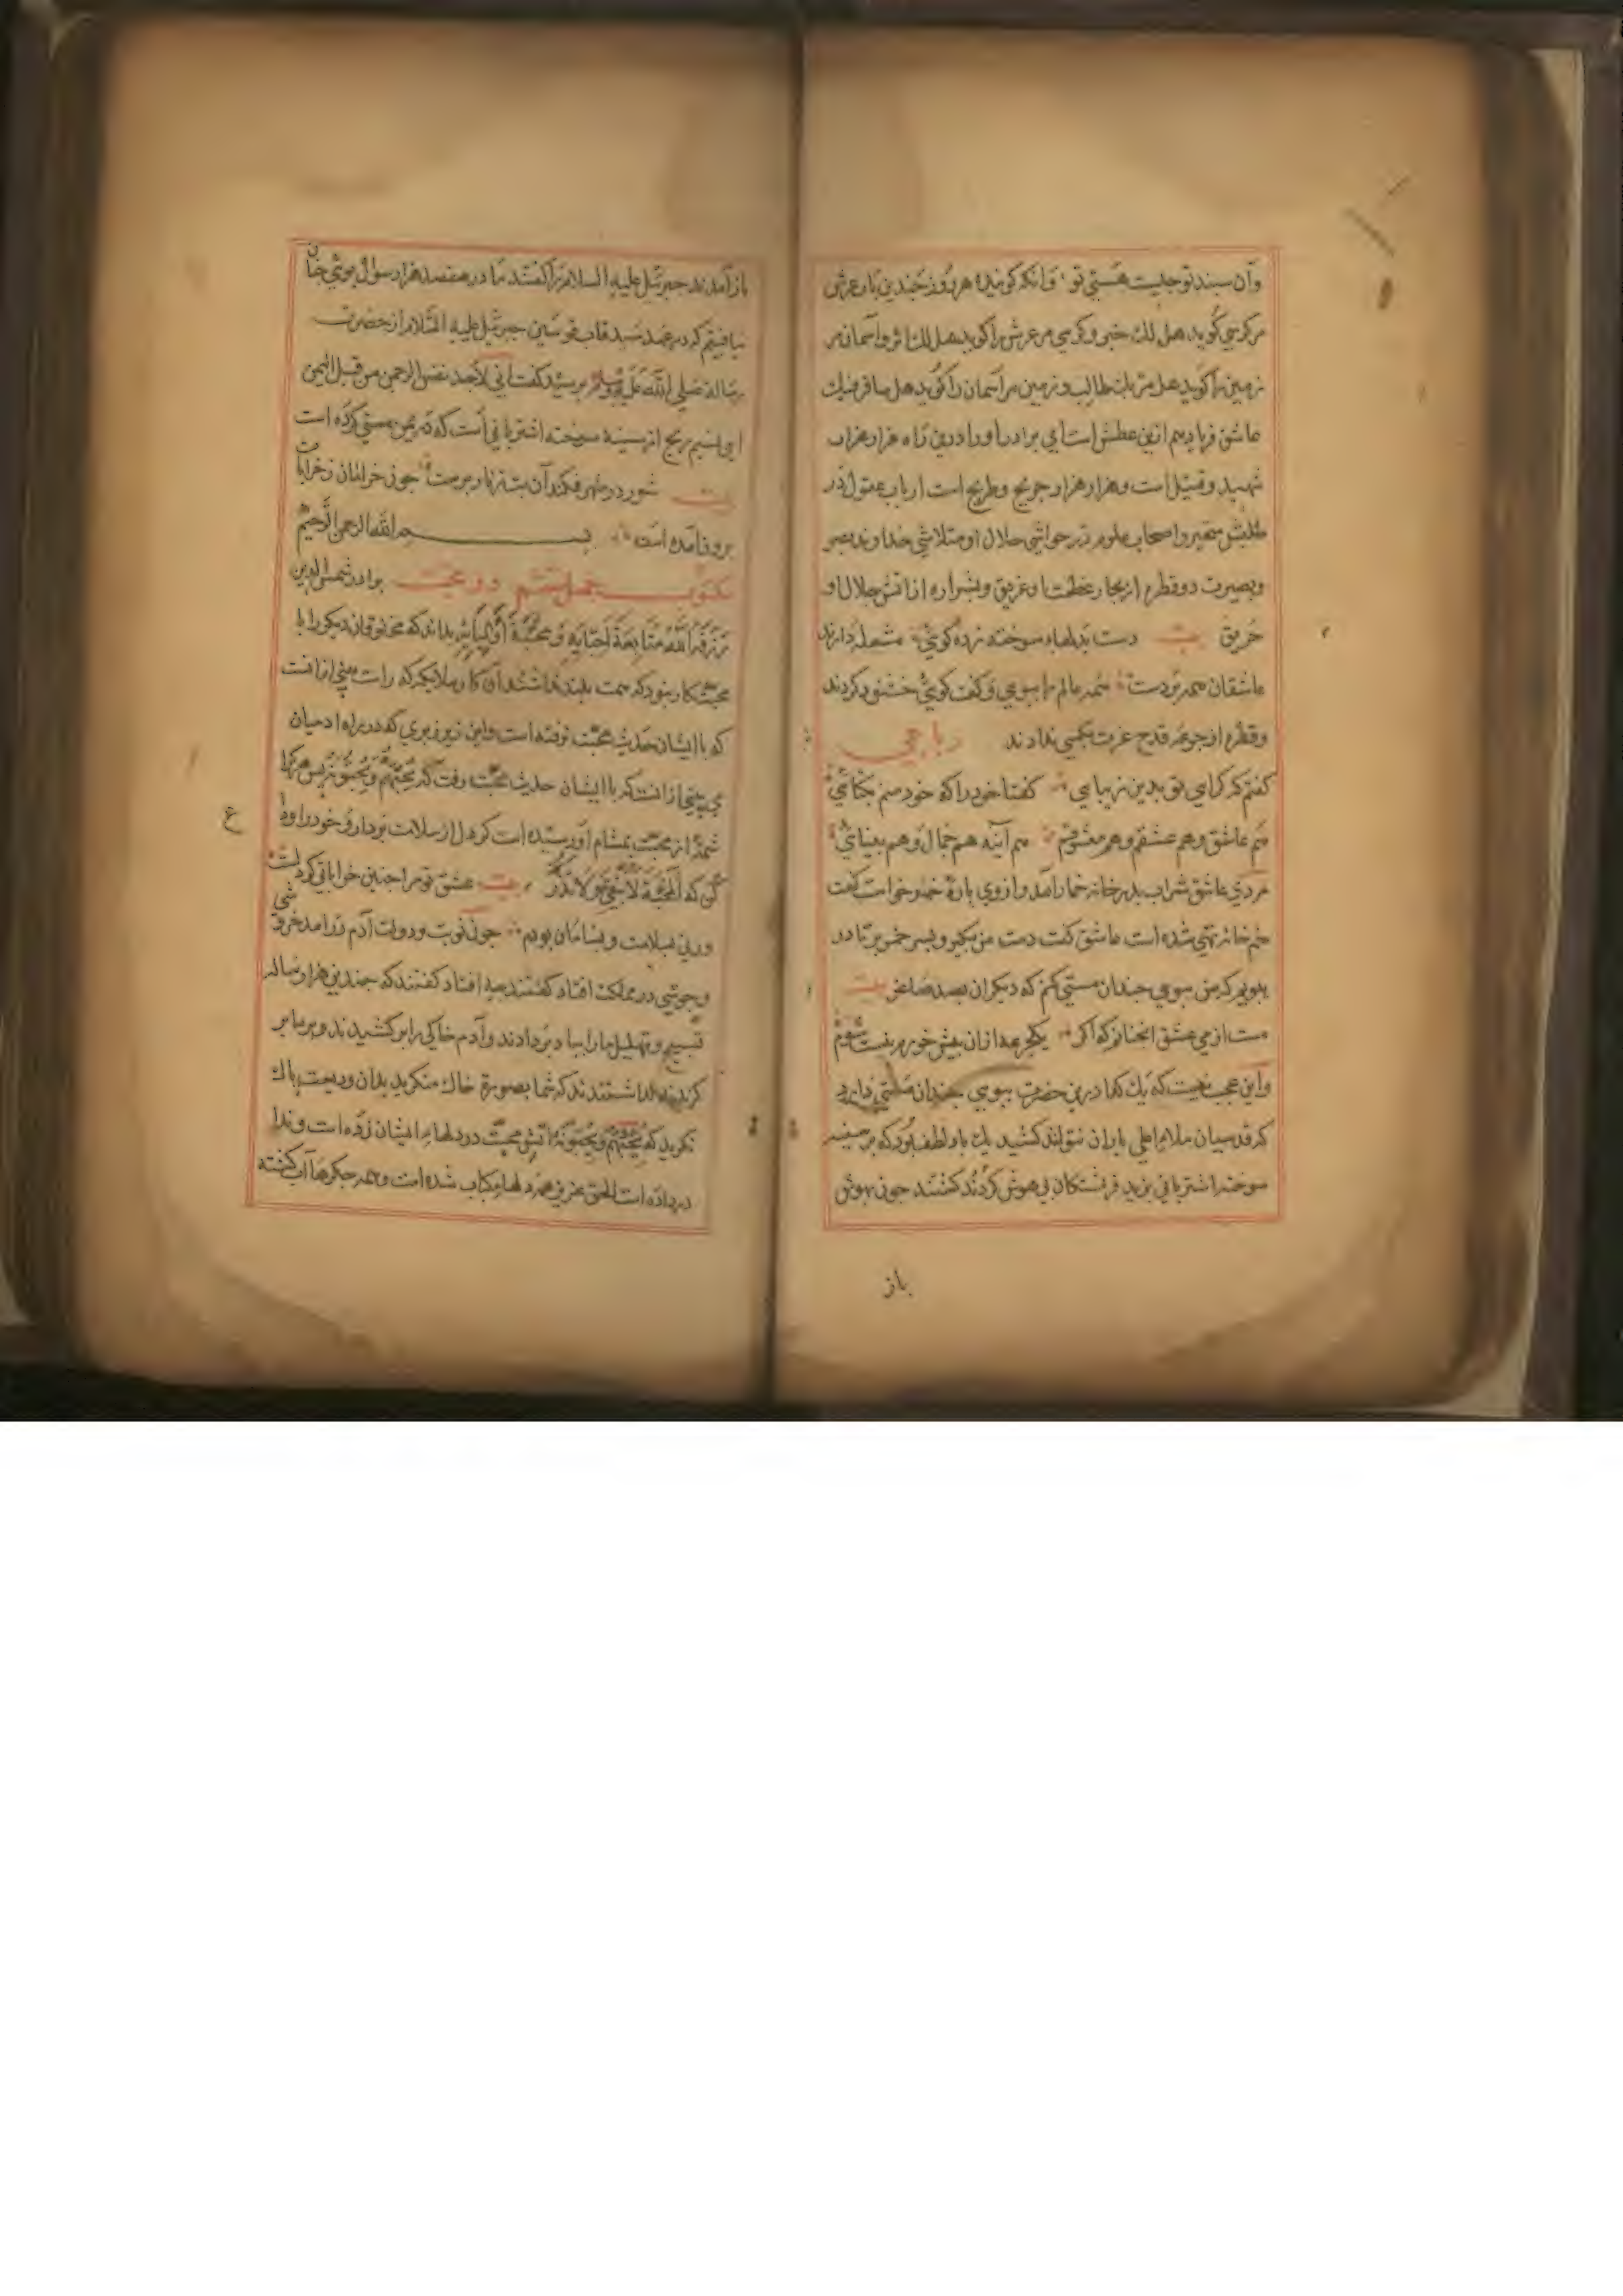 وآن سبند تو جلیت هستی تو وانکه کویند هر روز چندین بار عرش
مر کرسی کوید هل لك خبر وکرسی مر عرش را کوید هل لك اثر واسمان مر
زمین را کوید هل مر بك طالب وزمین مر آسمان را کوید هل سافر فیك
عاشق فریاد هم ازین عطش است ای برادر او را درین راه هزار هزار
شهید وقتیل است وهزار هزار جریح وطریح است ارباب عقول در
طلبش متحیر واصحاب علوم در حواشی جلال او متلاشی خداوند بصر
وبصیرت دو قطره از بحار عظمت او غریق وبشراره از اتش جلال او
حریق بیت دست بدلهاء سوخته زده کویی مشعله دارند
عاشقان همه بر دست همه عالم را ببویی وکفت کویی خشنود کردند
وقطره از جرعه قدح عزت بکسی ندادند رباعی
کفتم که کرایی تو بدین زیبایی کفتا خود را که خود منم یکتایی
هم عاشق وهم عشقم وهم معشوقم هم آینه هم جمال وهم بینایی
مردی عاشق شراب بدر خانه خمار آمد واز وی پارۀ خمر خواست کفت
خم خانه تهی شده است عاشق کفت دست من بکیر وبسر خم بر تا در
بویم که من ببویی چندان مستی کنم که دیکران بصد ساغر بیت
مست از می عشق انچنانم که اکر یکجرعه ازان بیش خورم نیست شوم
واین عجب نیست که یك کدا درین حضرت ببویی چندان مستی دارد
که قدسیان ملاء اعلی بار آن نتوانند کشید یك باد لطف بود که بر سینه
سوخته اشتربانی بزید فرشتکان بی هوش کردند کفتند چون بهوش
باز
باز آمدند جبرئیل علیه السلام را کفتند ما در هفصد هزار سال بوی چنان
نیافتیم که در عهد سید قاب قوسین جبرئیل علیه السلام از حضرت
رسالة صلی الله علیه وسلم پرسید کفت انی لاجد نفس الرحمن من قبل الیمن
این نسیم ریح از سینه سوخته اشتربانی است که در یمن مستی کرده است
بیت شور در شهر فکند آن بت زنار پرست چون خرامان ز خرابات
برون آمده است بسم الله الرحمن الرحیم
مکتوب چهل ششم در محبت برادر شمس الدین
رزقه الله متابعة احبایه ومحبة اولیایه بداند که مخلوقات دیکر را با
محبت کار نبود که همت بلند نداشتند آن کار ملایکه که راست بینی ازانست
که با ایشان حدیث محبت نرفته است واین زیر وزبری که در راه ادمیان
می بینی ازانست که با ایشان حدیث محبت رفت که یحبهم ویحبونه پس هر کرا
شمۀ از محبت بمشام او رسیده است کو دل از سلامت بردار وخود را وداع
کن که المحبة لا تبقی ولا تذر بیت عشق تو مرا چنین خراباتی کرد
ورنی بسلامت وبسامان بودم چون نوبت ودولت آدم درامد خروشی
وجوشی در مملکت افتاد کفتند چه افتاد کفتند که چندین هزار ساله
تسبیح وتهلیل ما را بباد بر دادند وآدم خاکی را بر کشیدند وبر ما بر
کزیدند ندا شنیدند که شما بصورة خاك منکرید بدان ودیعت پاك
نکرید که یحبهم ویحبونه اتش محبت در دلهاء ایشان زده است وندا
درداده است الحق عزیز همه دلها کباب شده است وهمه جکرها آب کشته
ع